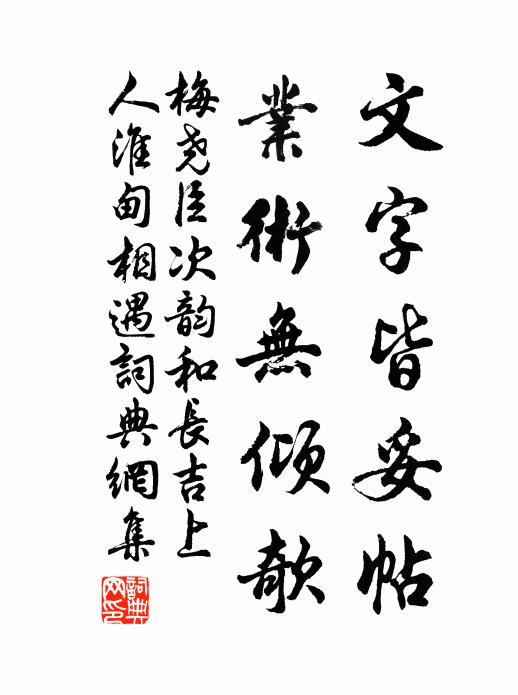 文字皆妥帖
業術無傾欹
梅堯臣次韵和長吉上
人淮甸相遇詞典網集
詞典
网印